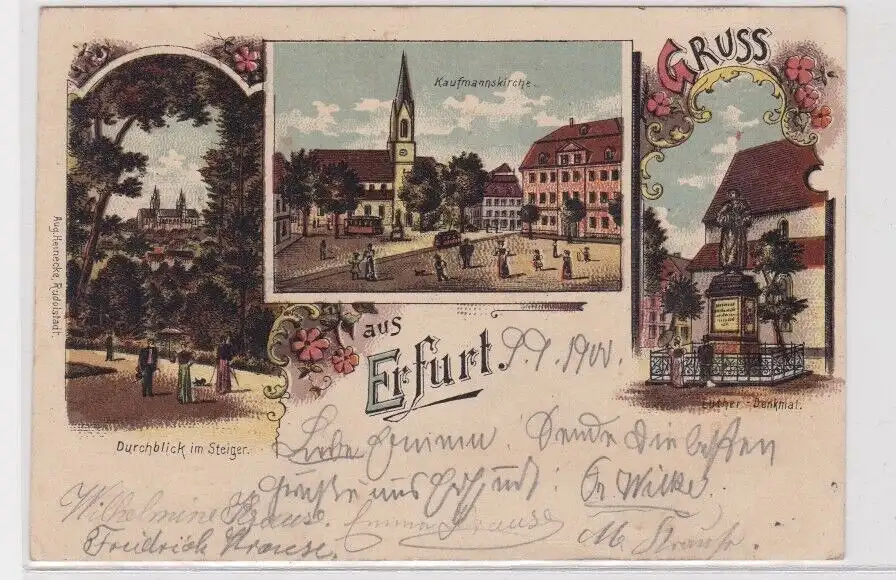 Kaufmannskirche.
GRUSS
aus
Erfurt
Aug. Heinecke, Rudolstadt.
Durchblick im Steiger.
Luther-Denkmal.
1900.
Liebe Sende die besten
Grüße aus Fr. Wilke.
Wilhelmine Krause. Emma Krause
Friedrich Krause. M. Krause